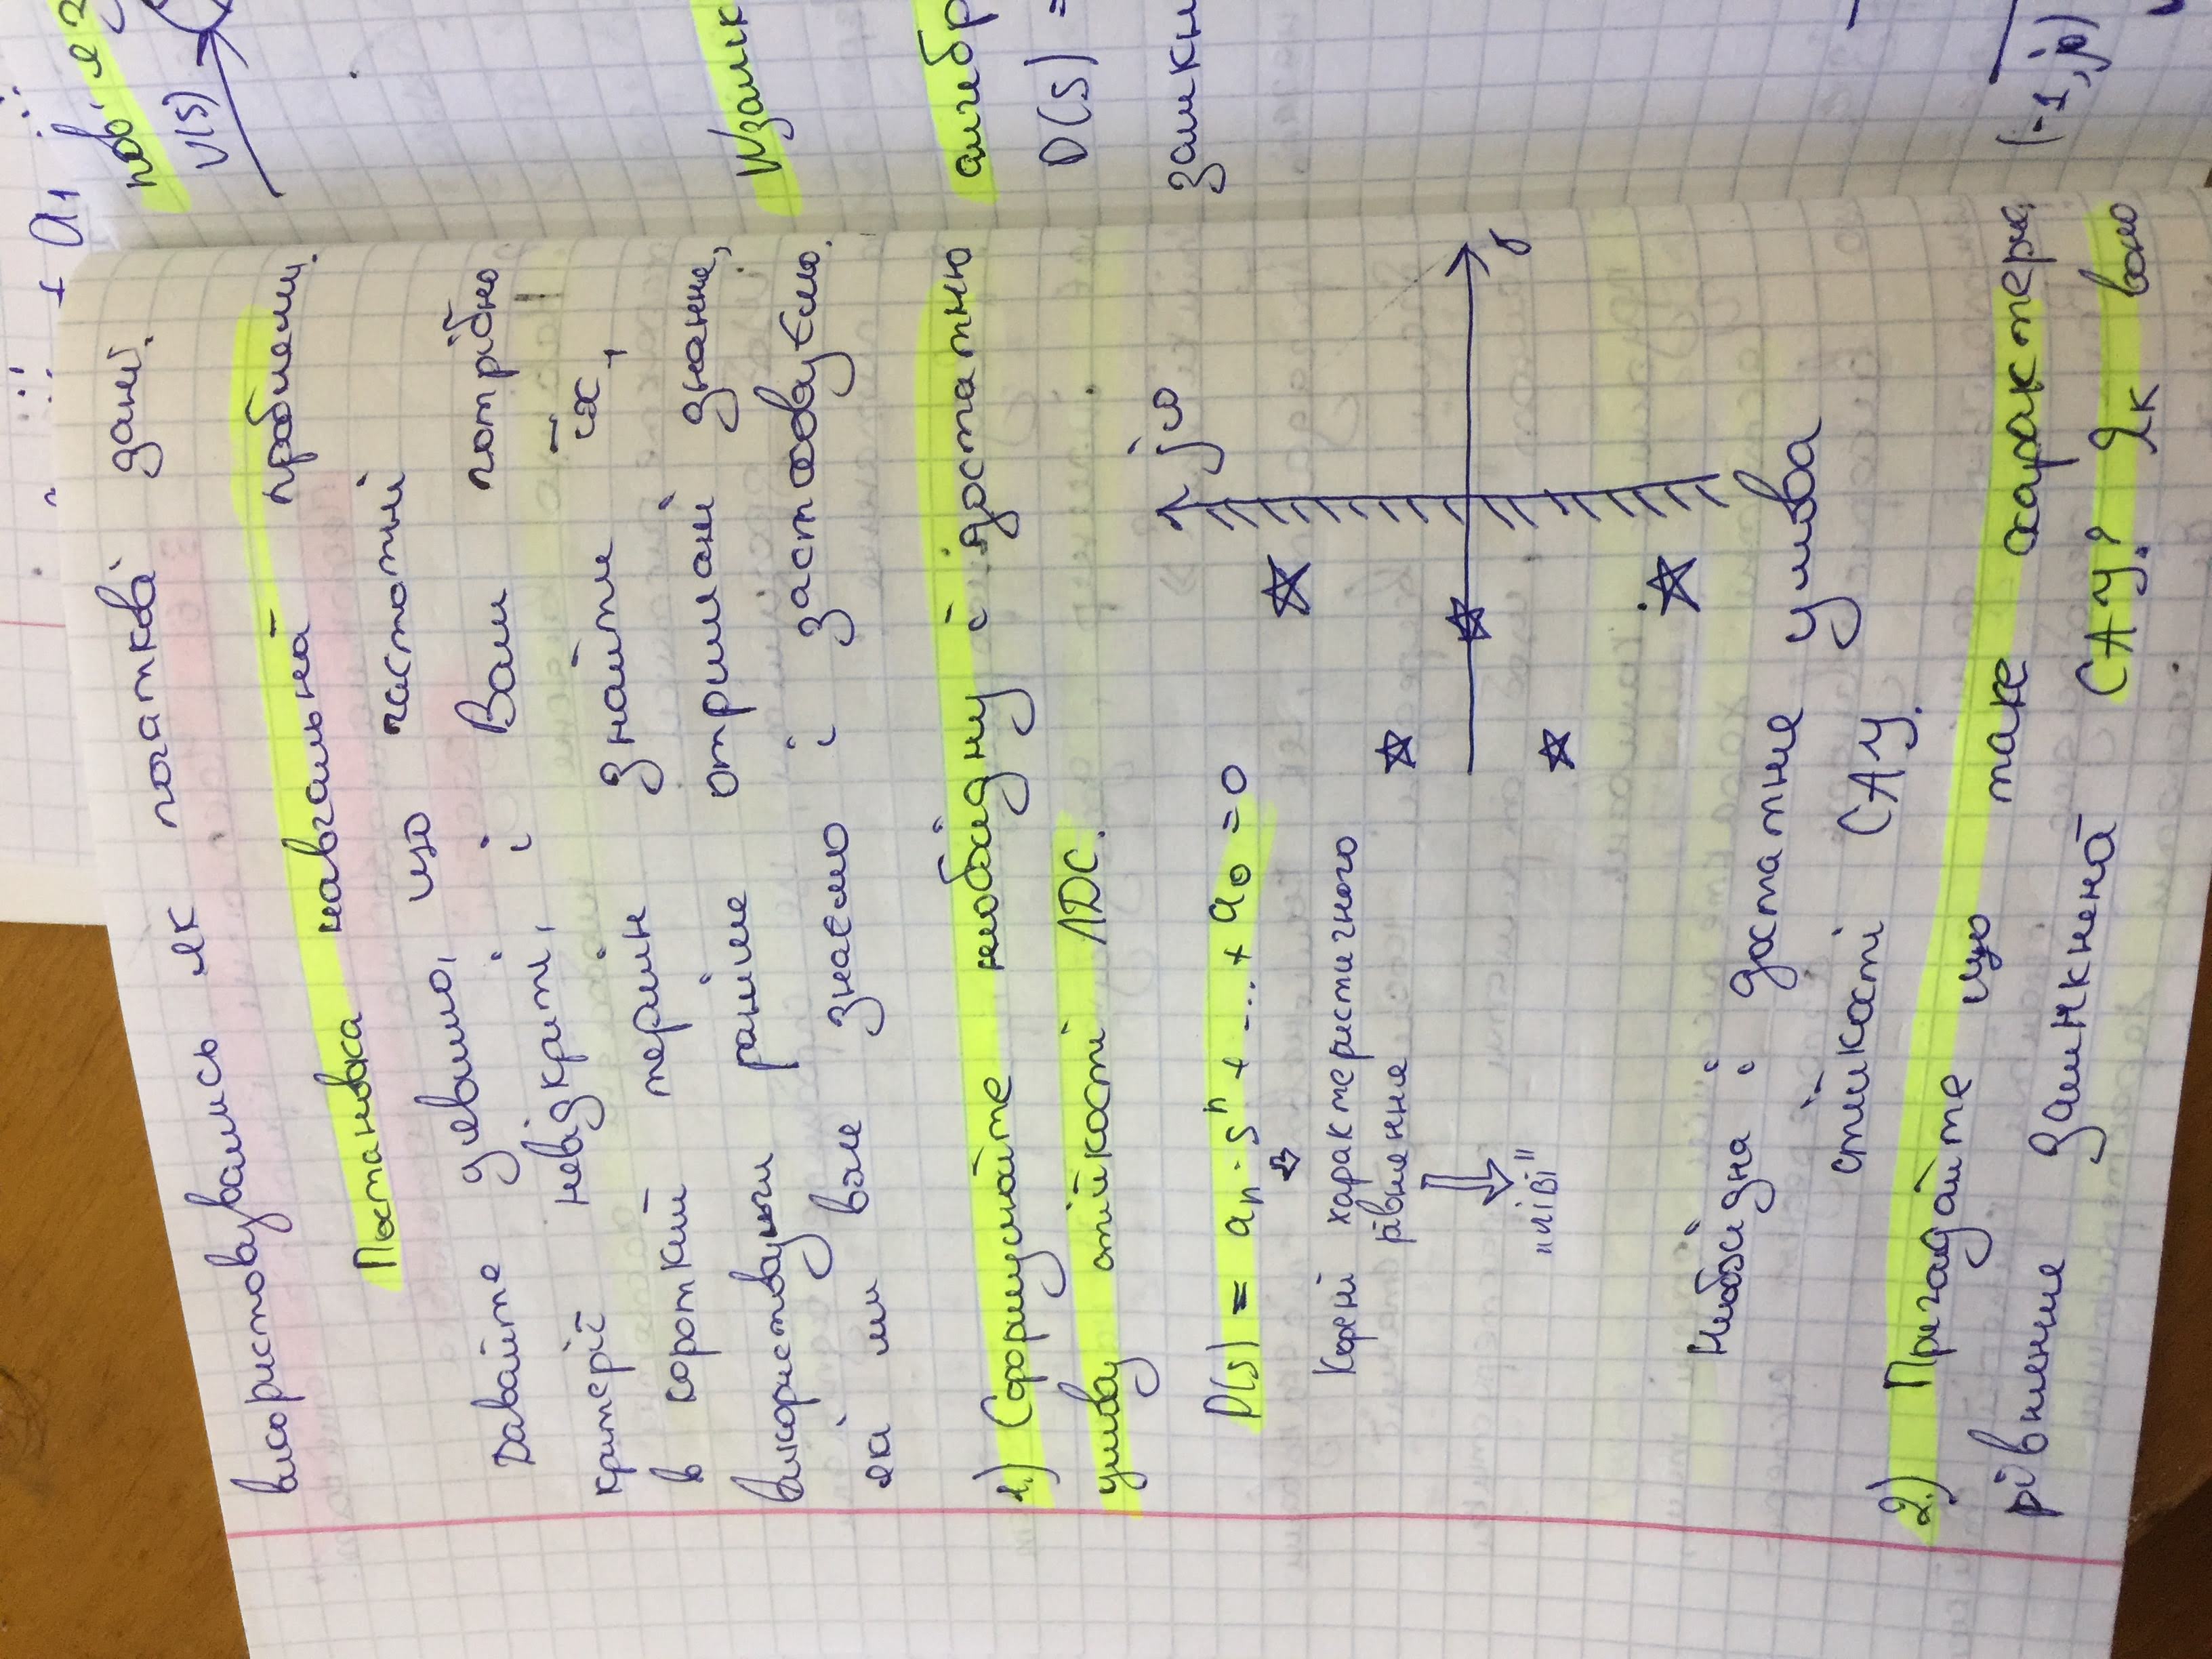 використовувались як початкові дані.
Постановка навчальної проблеми.
Давайте уявимо, що частотні
критерії невідкриті, і Вам потрібно
в короткий термін знайти їх,
використовуючи раніше отримані знання,
які ми вже знаємо і застосовуємо.
1.) Сформулюйте необхідну і достатню
умову стійкості ЛДС.
jω
D(s) = aₙ · sⁿ + ... + a₀ = 0
Корені характеристичного
рівняння
σ
"ліві"
Необхідна і достатня умова
стійкості САУ.
2.) Пригадайте що таке характерне
рівняння замкненої САУ? Як воно
+ a₁
пов'яз
V(s)
Wзамк
алгебр
D(s) =
замкн
(-1, j0)